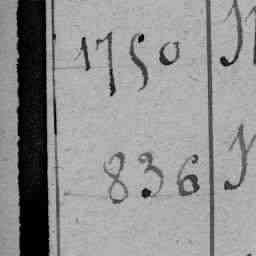 1750
836